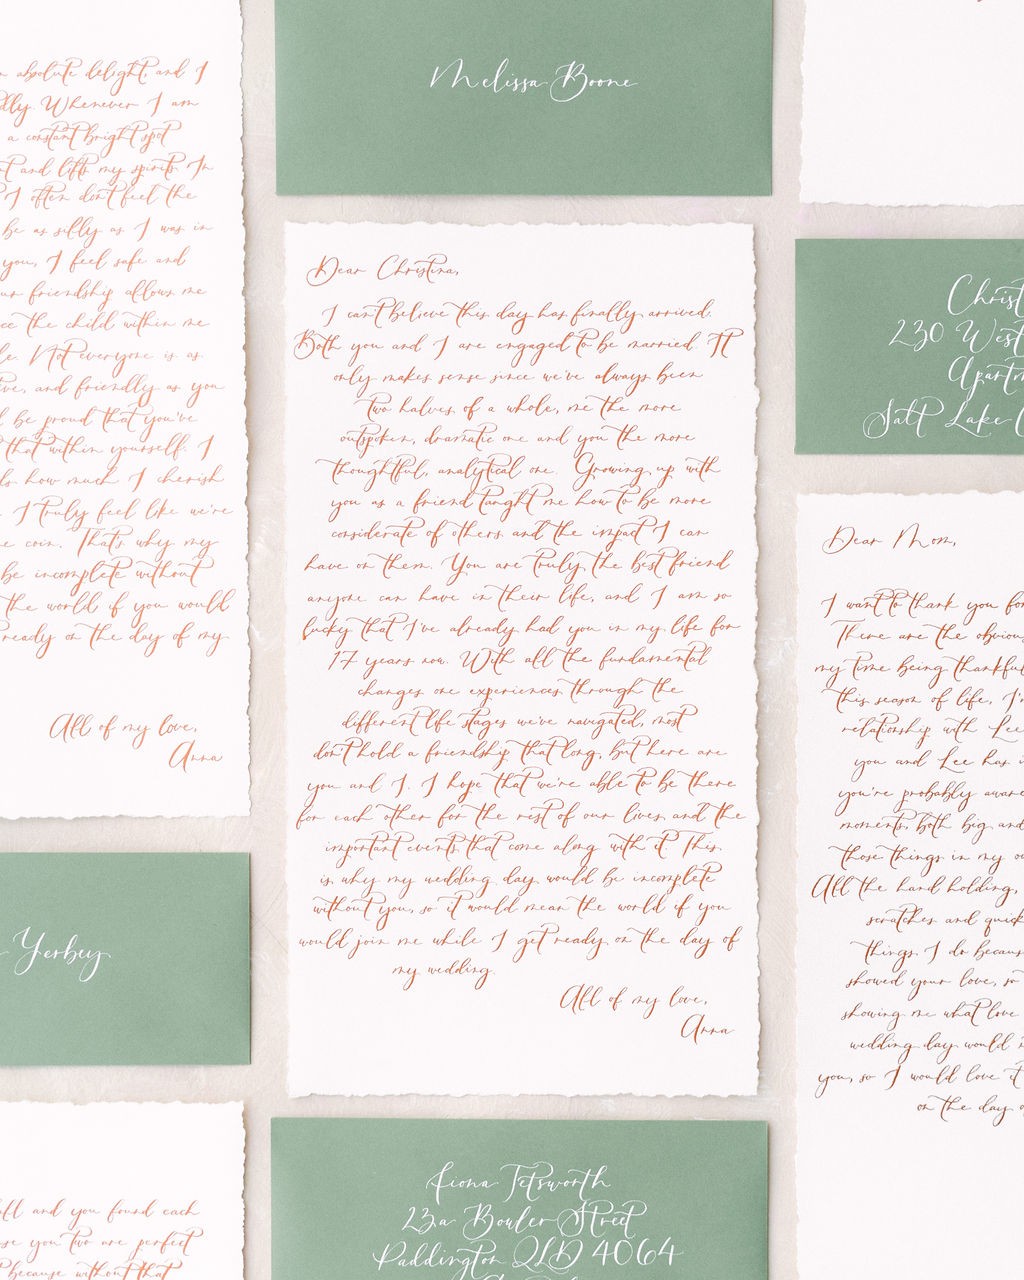 absolute delight, and I
Whenever I am
a constant bright spot
and lifts my spirits. In
I often don't feel the
be as silly as I was in
you, I feel safe and
friendship allows me
the child within me
Not everyone is as
and friendly as you
be proud that you've
that within yourself. I
how much I cherish
I truly feel like we're
coin. That's why my
be incomplete without
the world if you would
ready on the day of my
All of my love,
Anna
Yerbey
and you found each
you two are perfect
because without that
Melissa Boone
Dear Christina,
I can't believe this day has finally arrived.
Both you and I are engaged to be married. It
only makes sense since we've always been
two halves of a whole, me the more
outspoken, dramatic one and you the more
thoughtful, analytical one. Growing up with
you as a friend taught me how to be more
considerate of others and the impact I can
have on them. You are truly the best friend
anyone can have in their life, and I am so
lucky that I've already had you in my life for
17 years now. With all the fundamental
changes one experiences through the
different life stages we've navigated, most
don't hold a friendship that long, but here are
you and I. I hope that we're able to be there
for each other for the rest of our lives and the
important events that come along with it. This
is why my wedding day would be incomplete
without you, so it would mean the world if you
would join me while I get ready on the day of
my wedding.
All of my love,
Anna
Fiona Tetsworth
23a Bouler Street
Paddington QLD 4064
Christ
230 West
Apartm
Salt Lake C
Dear Mom,
I want to thank you for
There are the obvious
my time being thankful
this season of life, I'm
relationship with Lee
you and Lee has
you're probably aware
moments, both big and
those things in my
All the hand holding,
scratches and quick
things I do because
showed your love, so
showing me what love
wedding day would
you, so I would love it
on the day